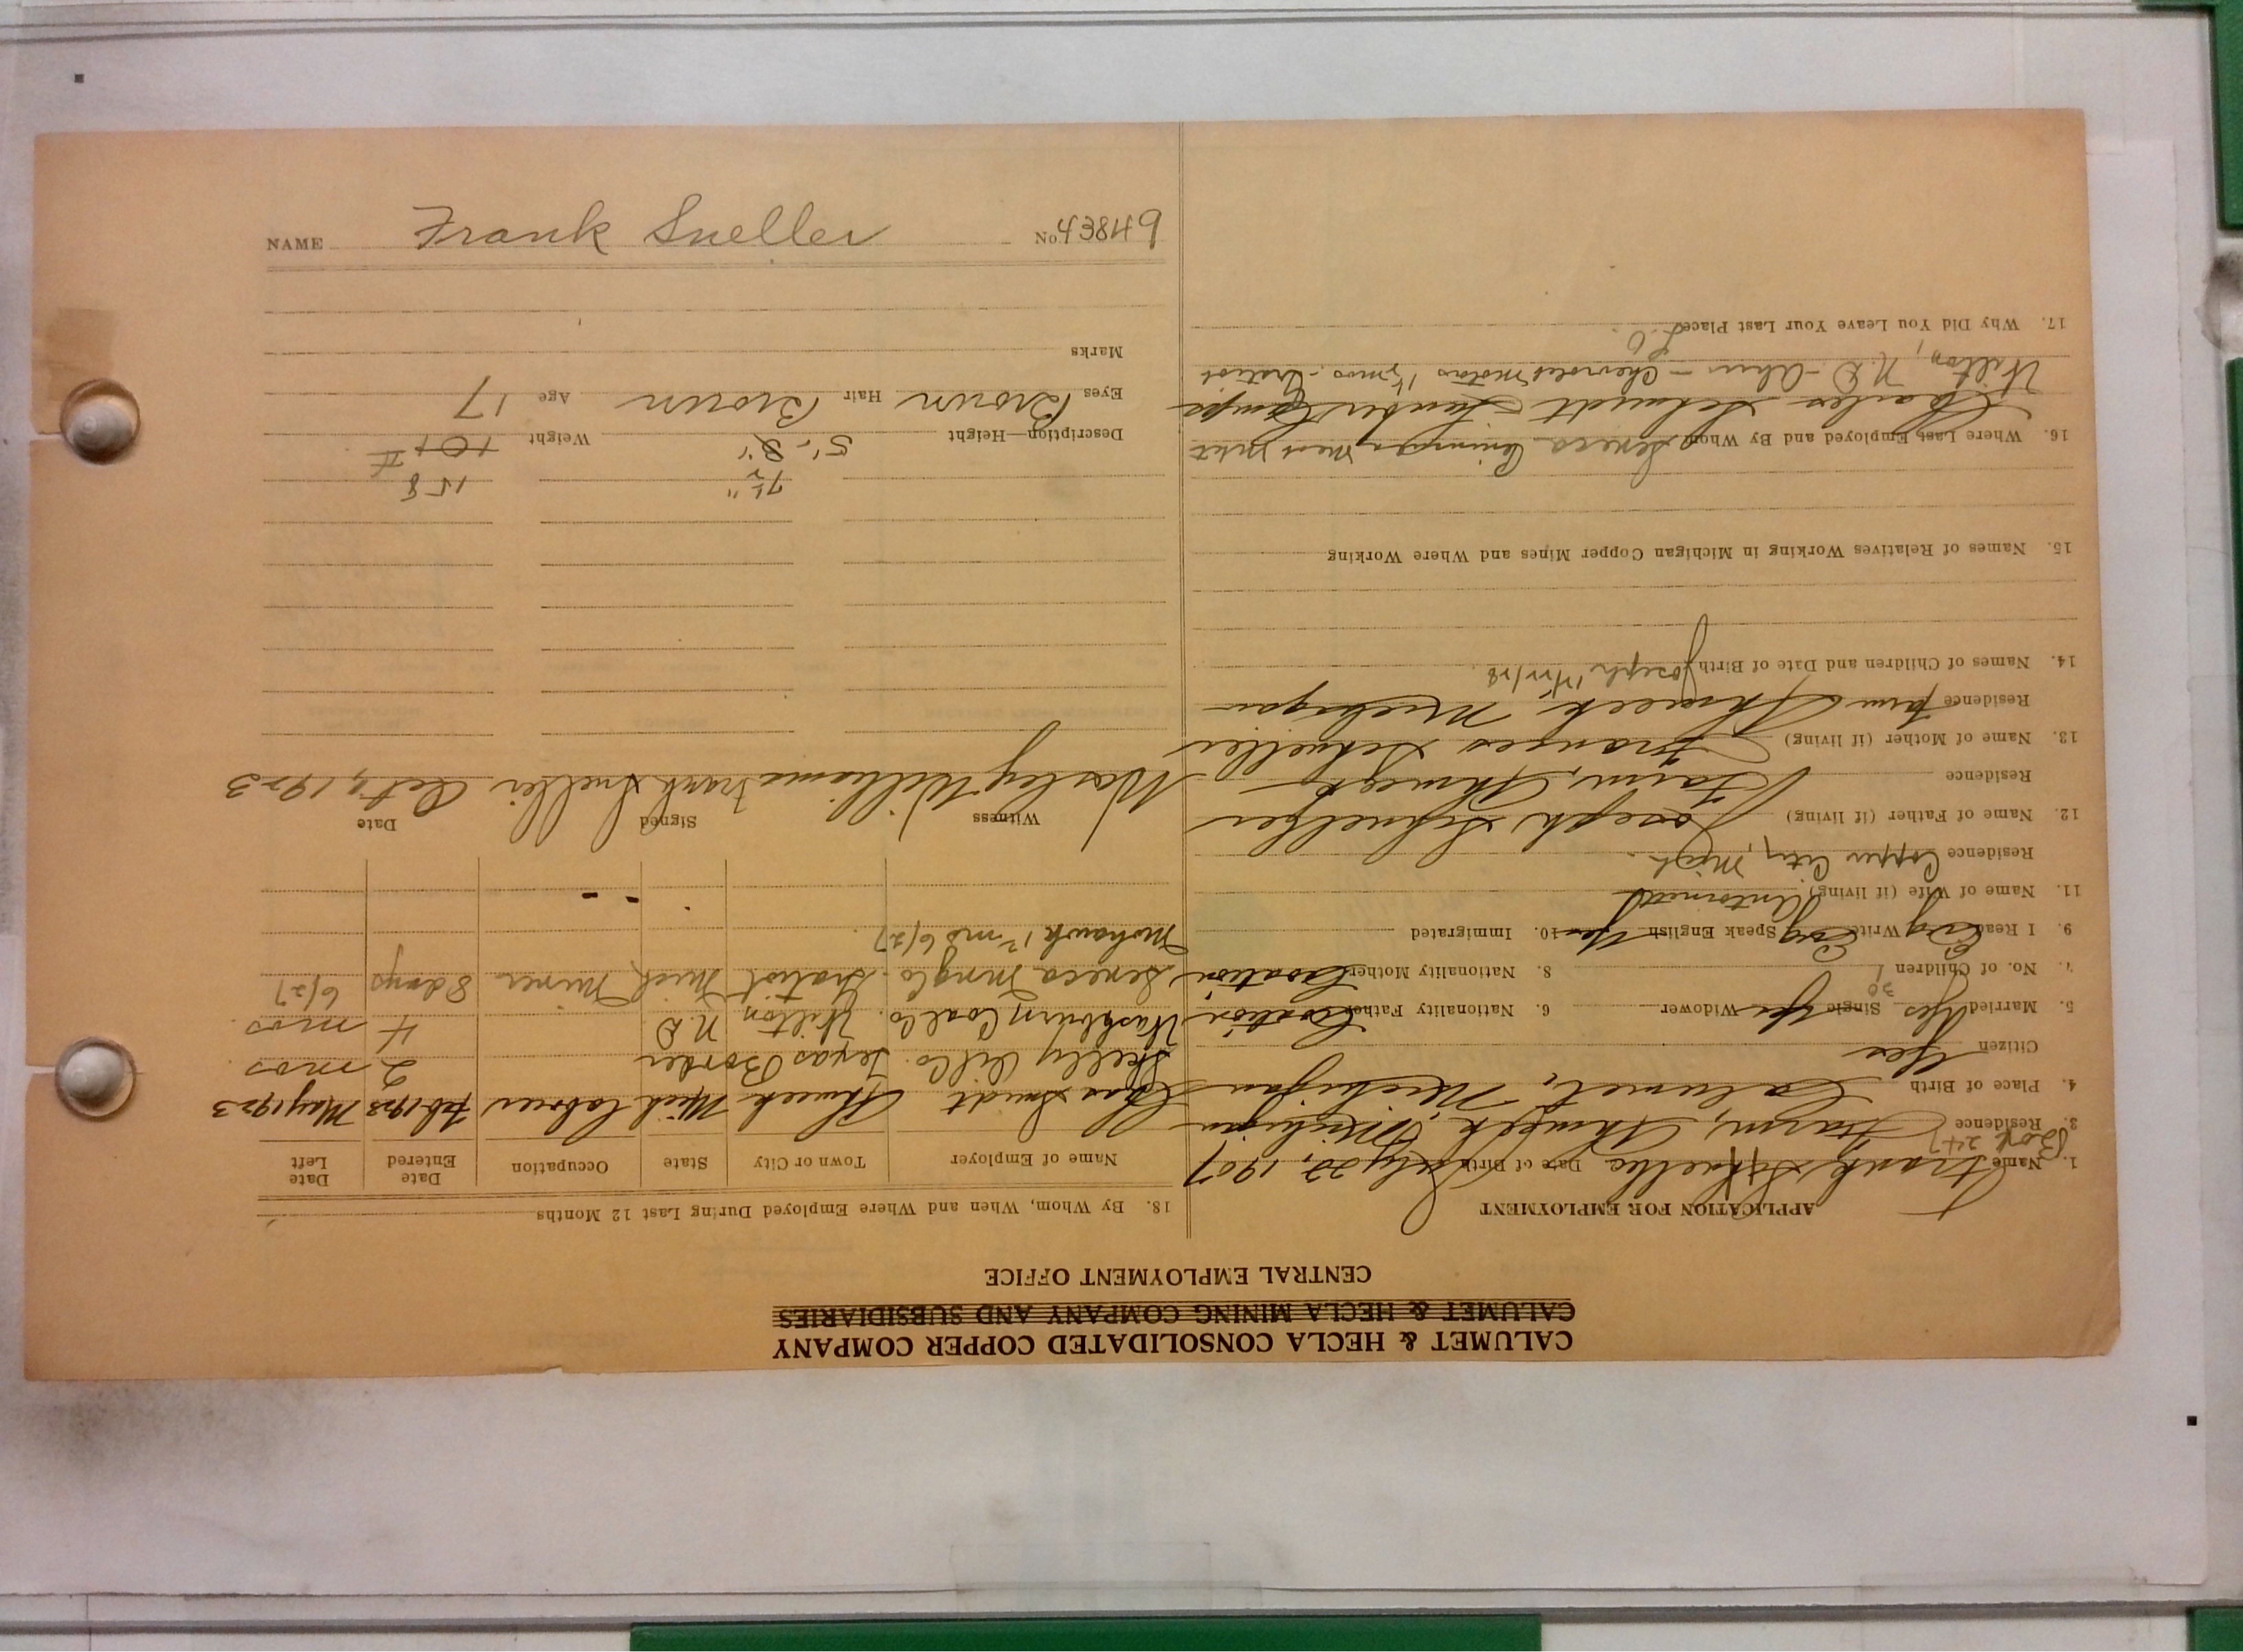 NAME Frank Sneller No. 43849
CALUMET & HECLA CONSOLIDATED COPPER COMPANY
CALUMET & HECLA MINING COMPANY AND SUBSIDIARIES
CENTRAL EMPLOYMENT OFFICE
APPLICATION FOR EMPLOYMENT
1. Name Frank Date of Birth July 22, 1907
Box 247
3. Residence Farm, Ahmeek, Michigan
4. Place of Birth Calumet, Michigan
Citizen Yes
5. Married Yes Single Yes Widower 6. Nationality Father Croatian
30
7. No. of Children 1 8. Nationality Mother Croatian
9. I Read Eng Write Eng Speak English Yes 10. Immigrated
11. Name of Wife (if living) Antoinette
Residence Copper City, Mich.
12. Name of Father (if living) Joseph
Residence Farm, Ahmeek
13. Name of Mother (if living) Frances Schneller
Residence Farm Ahmeek Michigan
14. Names of Children and Date of Birth Joseph
15. Names of Relatives Working in Michigan Copper Mines and Where Working
16. Where Last Employed and By Whom Seneca
Charles Schmidt Lumber Camps
Wilton, N.D. - Chevrolet Motors 1½ mos. - Gratiot
17. Why Did You Leave Your Last Place
18. By Whom, When and Where Employed During Last 12 Months
Name of Employer Town or City State Occupation Date Entered Date Left
Chas Smidt Ahmeek Mich laborer Feb 1923 May 1923
Skelly Oil Co. Texas Border 2 mos
Washburn Coal Co. Wilton N.D 4 mos
Seneca Mng Co. Gratiot Mich Miner 8 days 6/27
Mohawk 1 mo 6/27
Witness Signed Date
Wesley Williams Frank Sneller Oct 9, 1923
7½" 158
Description—Height 5'-8" Weight
Eyes Brown Hair Brown Age 17
Marks